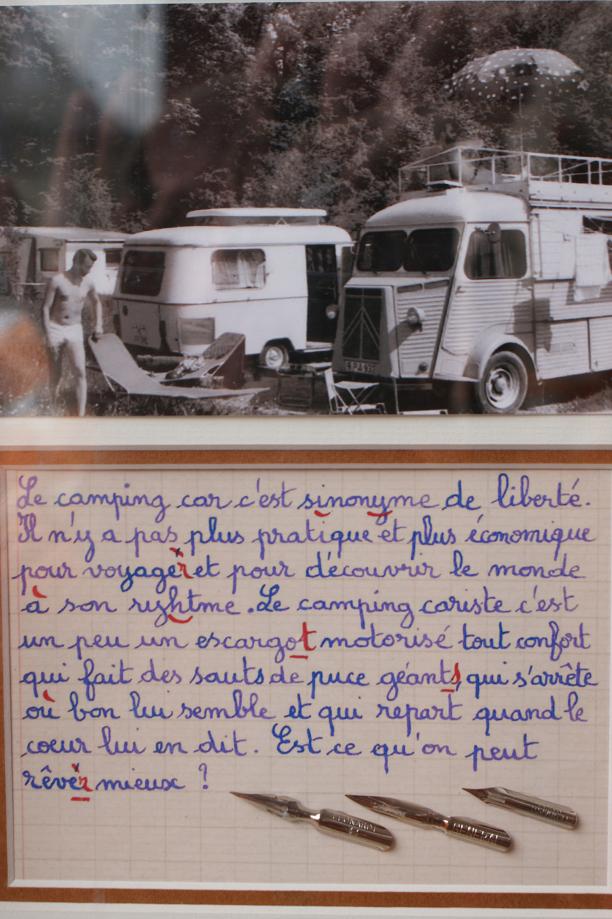 Le camping car c'est sinonyme de liberté.
Il n'y a pas plus pratique et plus économique
pour voyager et pour découvrir le monde
à son ryhtme. Le camping cariste c'est
un peu un escargot motorisé tout confort
qui fait des sauts de puce géants, qui s'arrête
où bon lui semble et qui repart quand le
cœur lui en dit. Est ce qu'on peut
rêver mieux ?